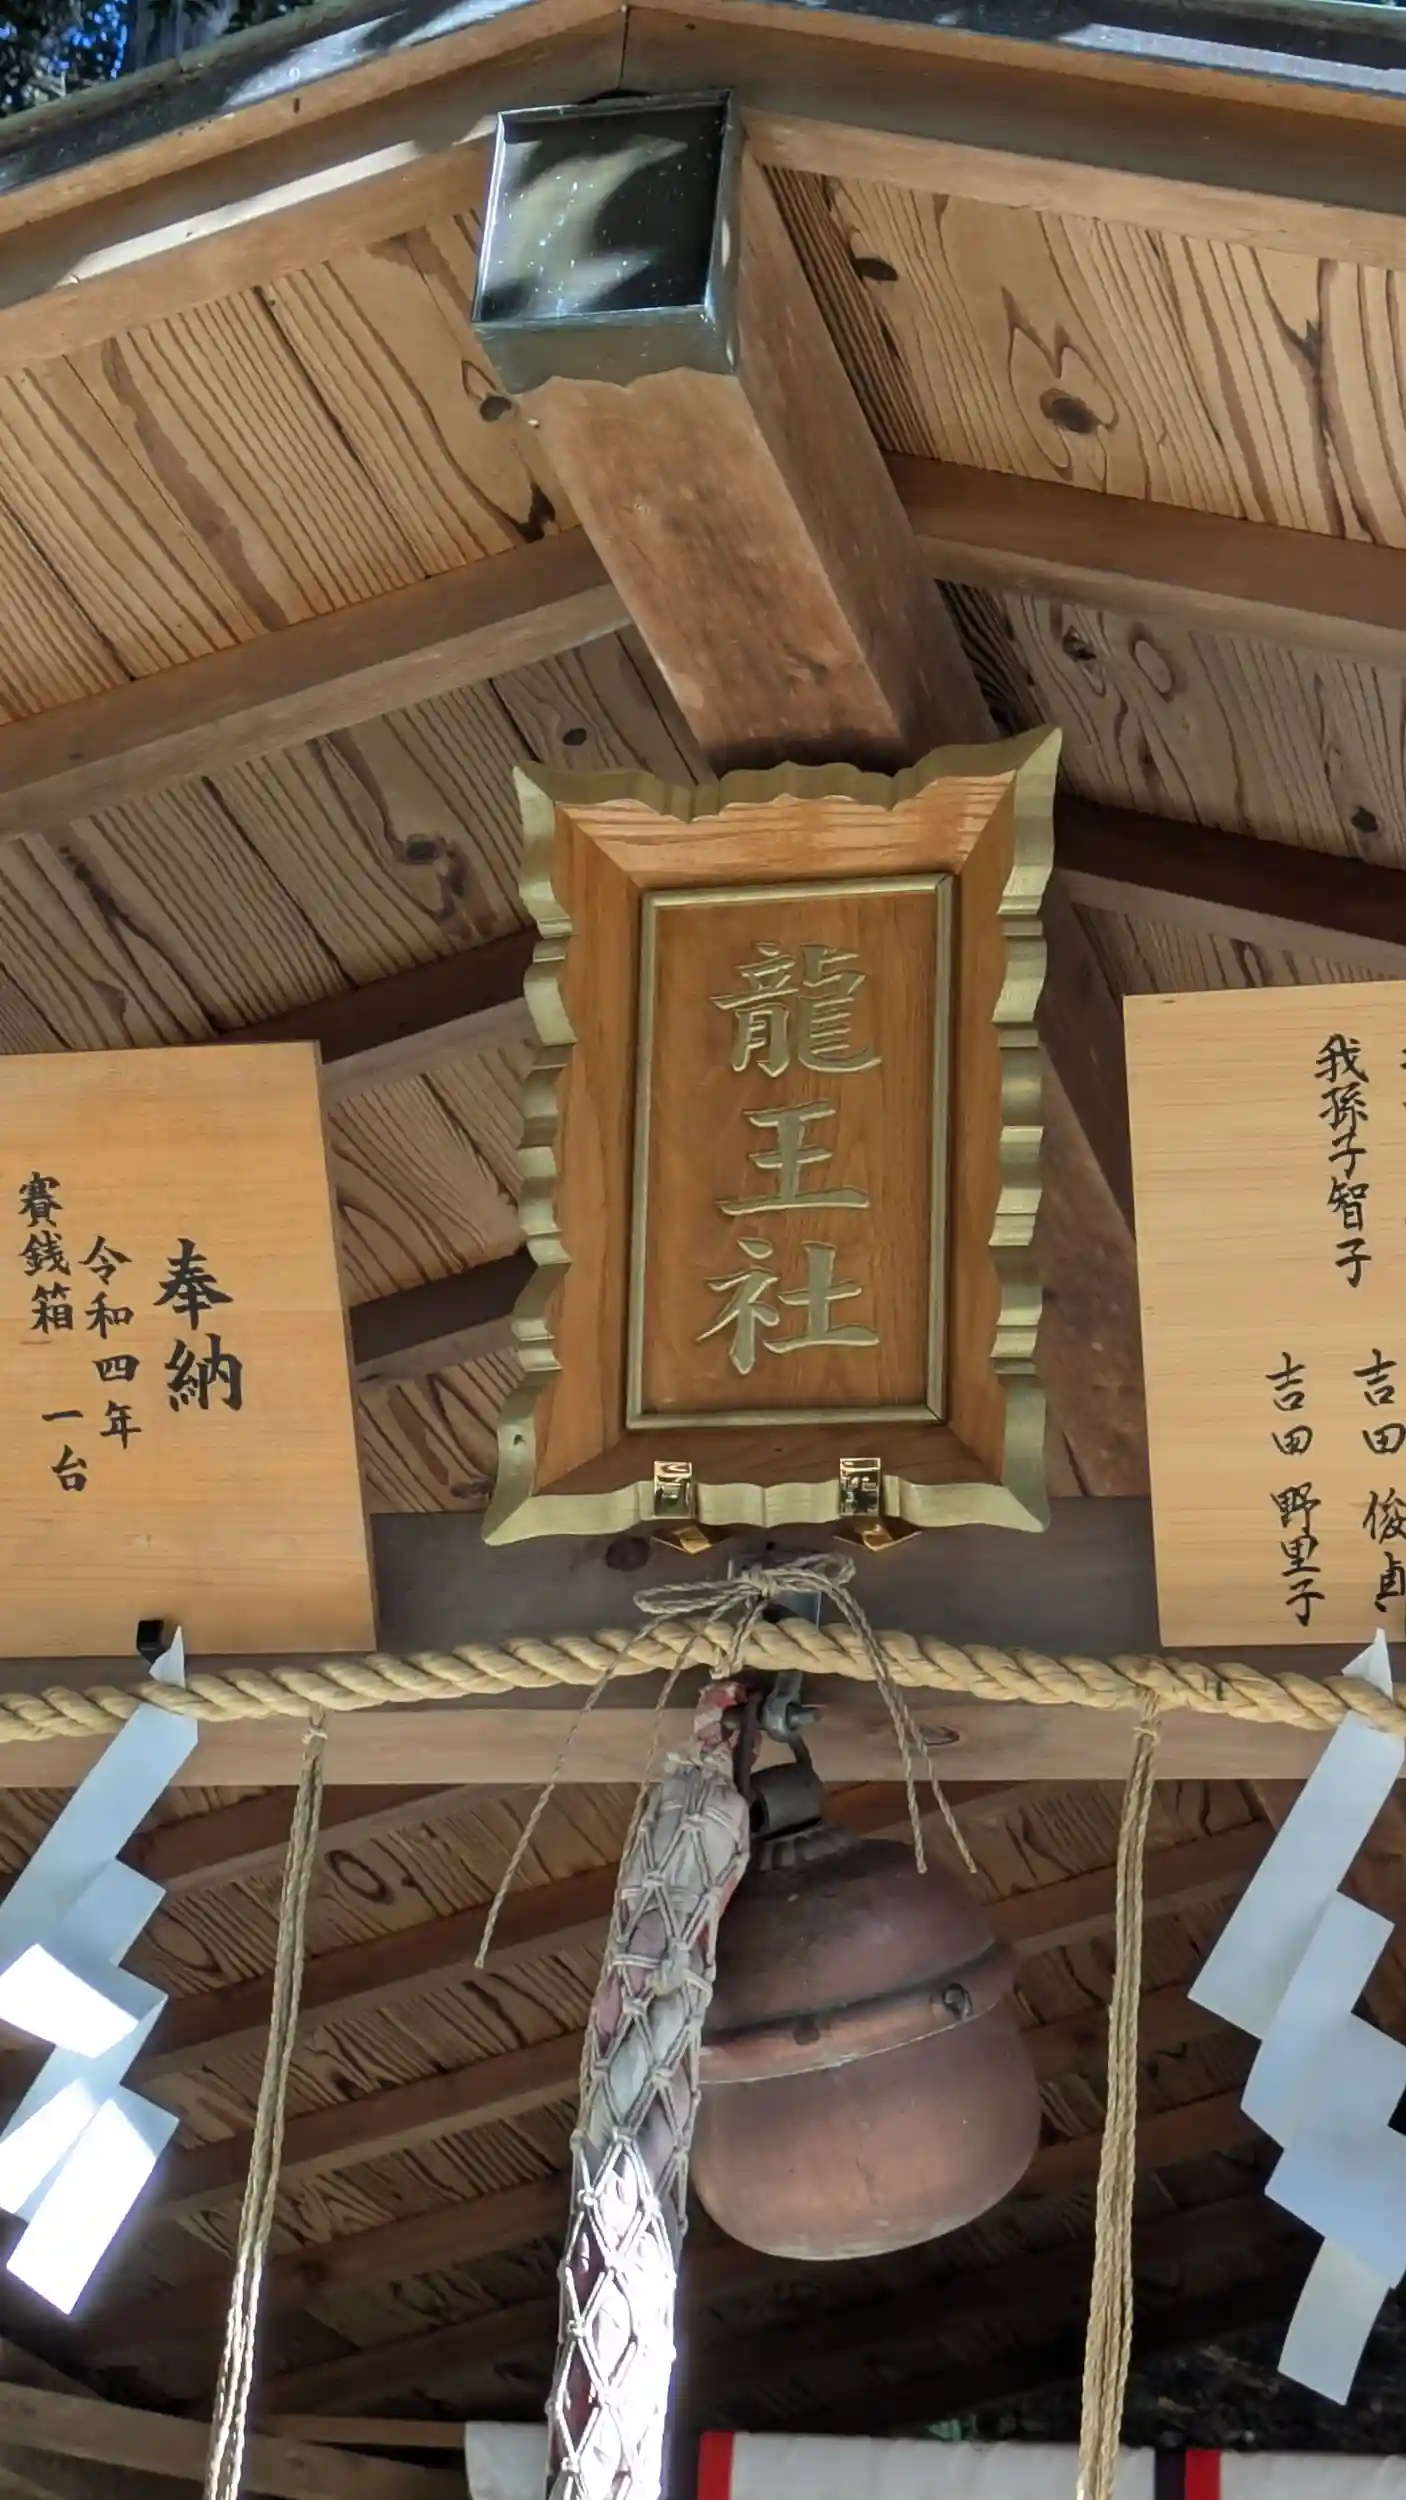 龍王社
奉納
令和四年
賽銭箱 一台
我孫子智子
吉田 俊貞
吉田 野里子